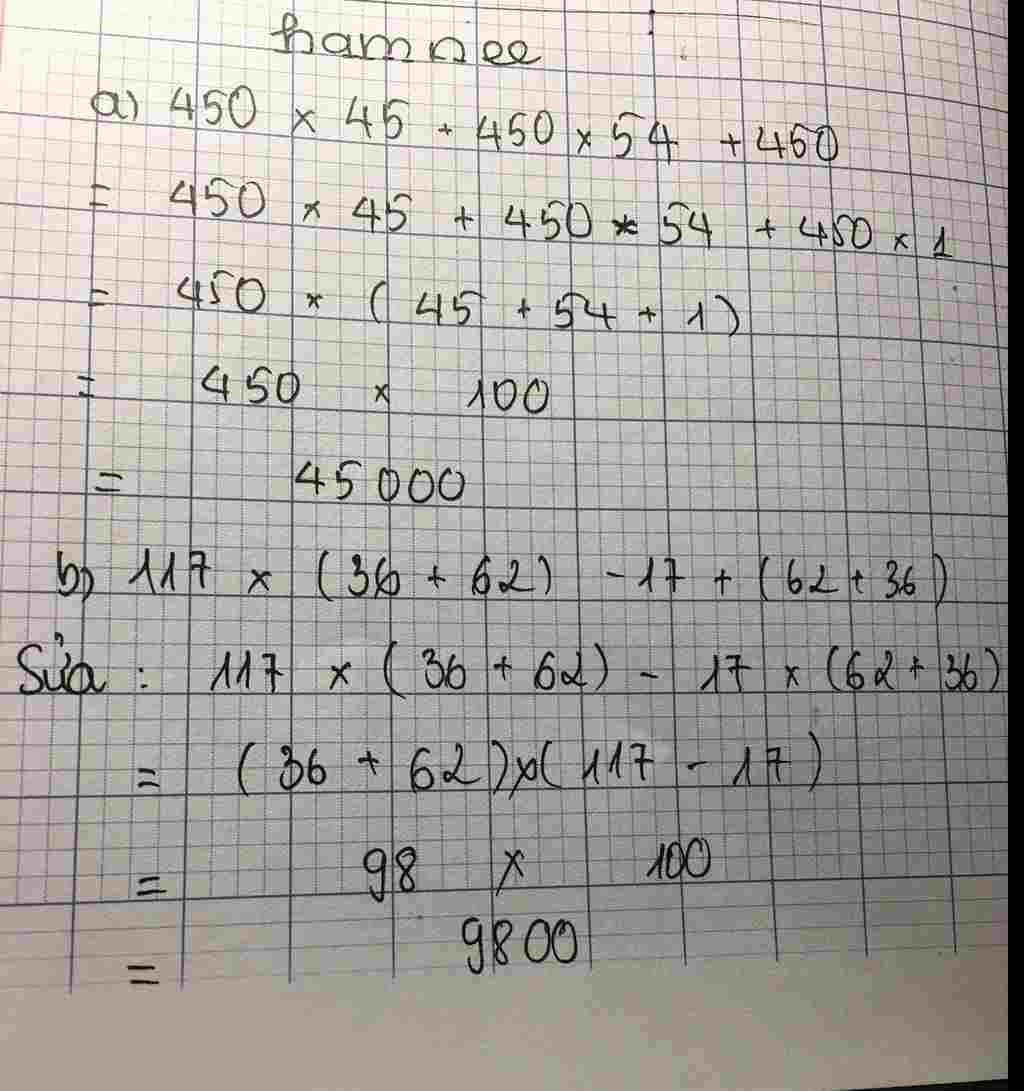 hamnee
a) 450 × 45 + 450 × 54 + 450
= 450 × 45 + 450 × 54 + 450 × 1
= 450 × ( 45 + 54 + 1)
= 450 × 100
= 45 000
b) 117 × (36 + 62) - 17 + (62 + 36)
Sửa : 117 × ( 36 + 62) - 17 × (62 + 36)
= (36 + 62)×(117 - 17)
= 98 × 100
= 9800